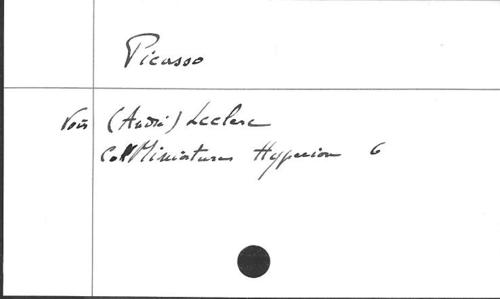 Picasso
Voir (André) Leclerc
Coll Miniatures Hyperion 6